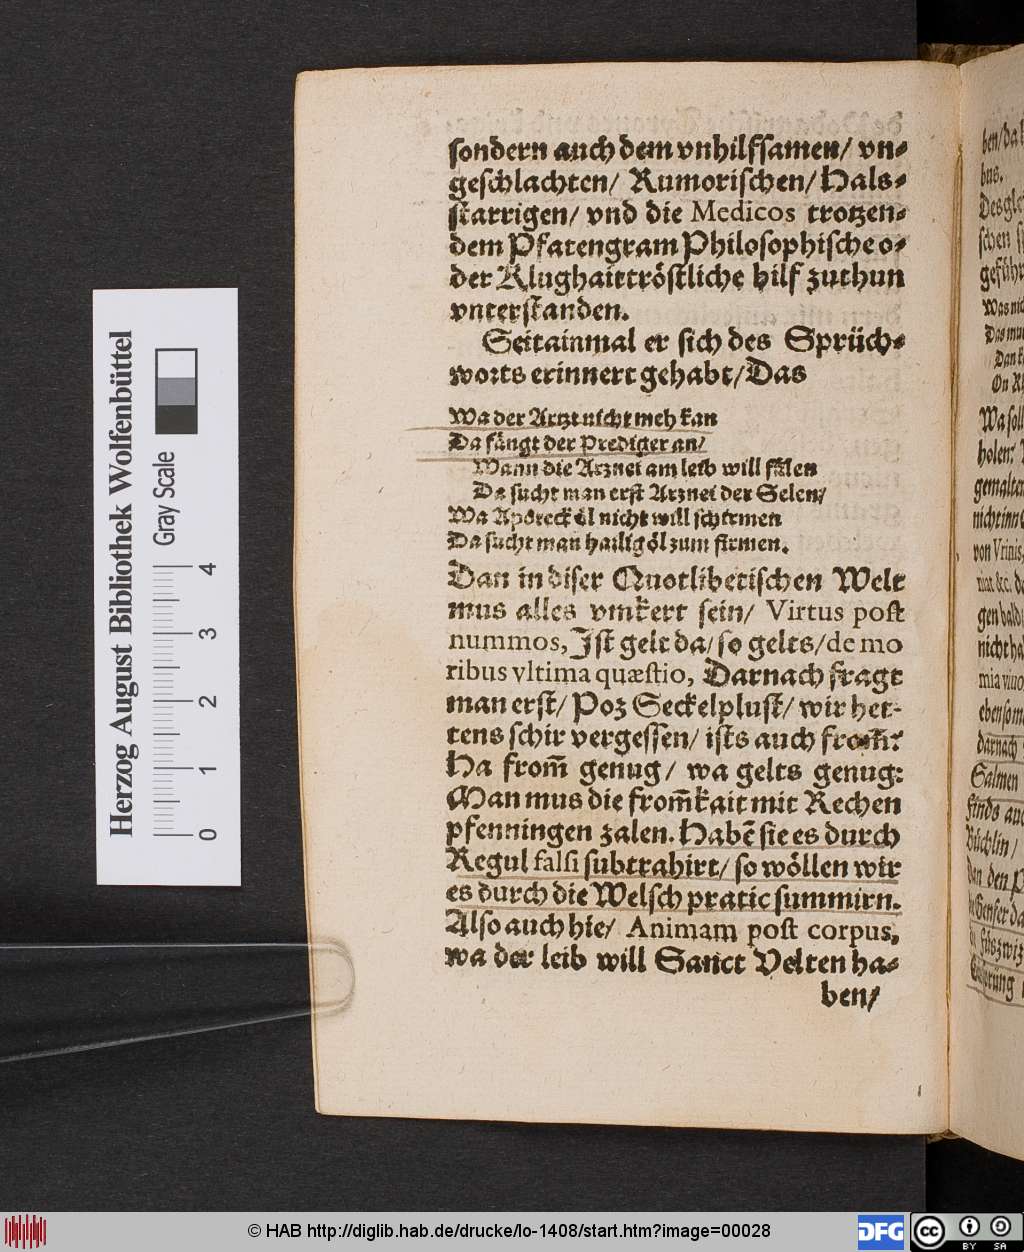 sondern auch dem vnhilfsamen/ vn-
geschlachten/ Rumorischen/ Hals-
starrigen/ vnd die Medicos trotzen-
dem Pfatengram Philosophische o-
der Klughait tröstliche hilf zuthun
vnterstanden.
Seitainmal er sich des Sprüch-
worts erinnert gehabt/ Das
Wa der Artzt nicht meh kan
Da fängt der Prediger an/
Wann die Arznei am leib will fälen
Da sucht man erst Arznei der Selen/
Wa Apoteck öl nicht will schirmen
Da sucht man hailig öl zum firmen.
Dan in diser Quotlibetischen Welt
mus alles vmkert sein/ Virtus post
nummos, Ist gelt da/ so gelts/ de mo
ribus vltima quæstio, Darnach fragt
man erst/ Poz Seckelplust/ wir het-
tens schir vergessen/ ists auch from̃?
Ha from̃ genug/ wa gelts genug:
Man mus die from̃kait mit Rechen
pfenningen zalen. Habẽ sie es durch
Regul falsi subtrahirt/ so wöllen wir
es durch die Welsch pratic summirn.
Also auch hie/ Animam post corpus,
wa der leib will Sanct Velten ha-
ben/
ben/ da
bus.
Desglei
schen
geführ
Was nic
Das mu
Dan k
On
Wa soll
holen?
gemalten
nicht inn
von Vrinis
mat &c. de
gen bald
nicht ha
mia viuo
eben so m
darnach
Salmen
sinds auc
Büchlin/
Dan den P
Herzog August Bibliothek Wolfenbüttel
Gray Scale
0 1 2 3 4
© HAB http://diglib.hab.de/drucke/lo-1408/start.htm?image=00028
DFG
cc
BY SA